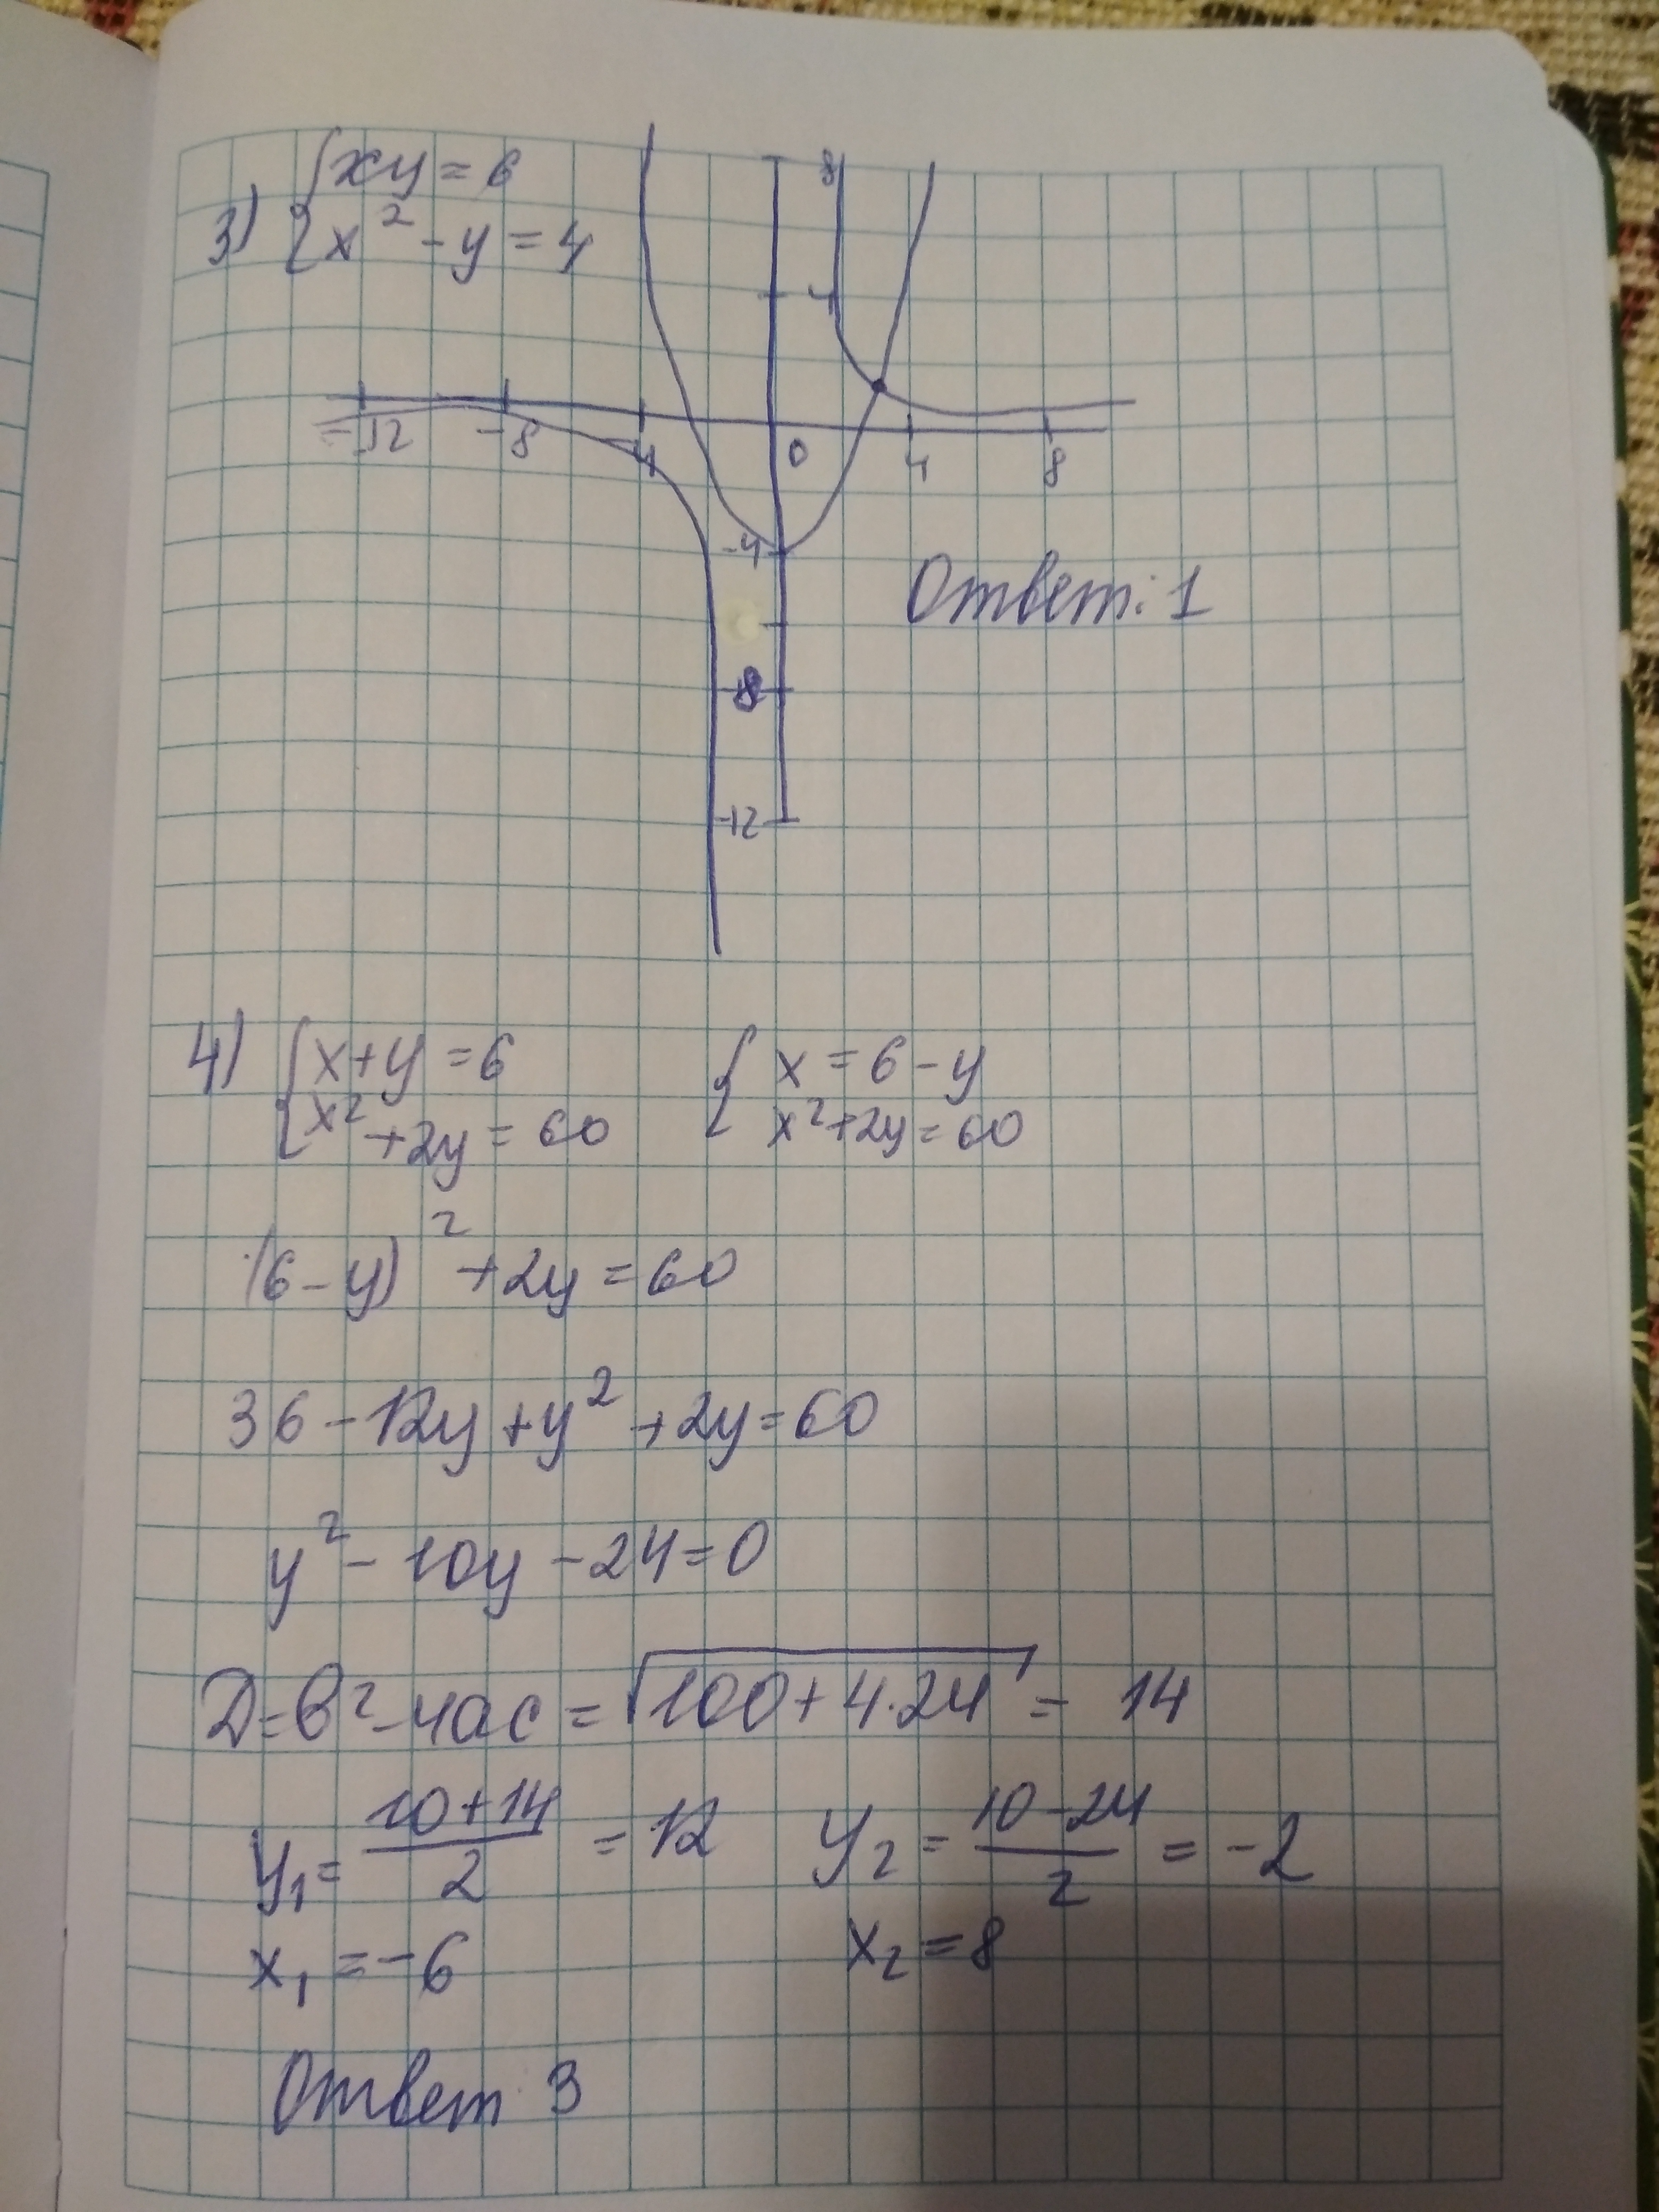 3) { xy = 6
x² - y = 4
8
4
-12 -8 -4 0 4 8
-4
Ответ: 1
-8
-12
4) { x+y = 6 { x = 6 - y
x² + 2y = 60 x² + 2y = 60
(6 - y)² + 2y = 60
36 - 12y + y² + 2y = 60
y² - 10y - 24 = 0
D = b² - 4ac = √100 + 4·24 = 14
y₁ = (10+14)/2 = 12 y₂ = (10-24)/2 = -2
x₁ = -6 x₂ = 8
Ответ 3